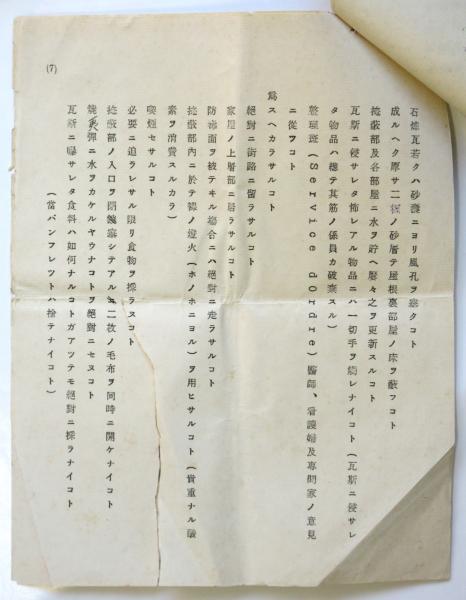 石煉瓦若クハ砂嚢ニヨリ風孔ヲ塞クコト
成ルヘク厚サ二糎ノ砂層テ屋根裏部屋ノ床ヲ蔽フコト
掩蔽部及各部屋ニ水ヲ貯ヘ屡々之ヲ更新スルコト
瓦斯ニ侵サレタ怖レアル物品ニハ一切手ヲ觸レナイコト(瓦斯ニ侵サレ
タ物品ハ總テ其筋ノ係員カ破棄スル)
整理班(Service dOrdre)醫師、看護婦及專門家ノ意見
ニ從フコト
爲スヘカラサルコト
絕對ニ街路ニ留ラサルコト
家屋ノ上層部ニ居ラサルコト
防毒面ヲ被テキル場合ニハ絕對ニ走ラサルコト
掩蔽部內ニ於テ裸ノ燈火(ホノホニヨル)ヲ用ヒサルコト(貴重ナル酸
素ヲ消費スルカラ)
喫煙セサルコト
必要ニ迫ラレサル限リ食物ヲ採ラヌコト
掩蔽部ノ入口ヲ閉鎖塞シテアル二枚ノ毛布ヲ同時ニ開ケナイコト
燒夷彈ニ水ヲカケルヤウナコトヲ絕對ニセヌコト
瓦斯ニ曝サレタ食料ハ如何ナルコトガアツテモ絕對ニ採ラナイコト
(當パンフレツトハ捨テナイコト)
(7)